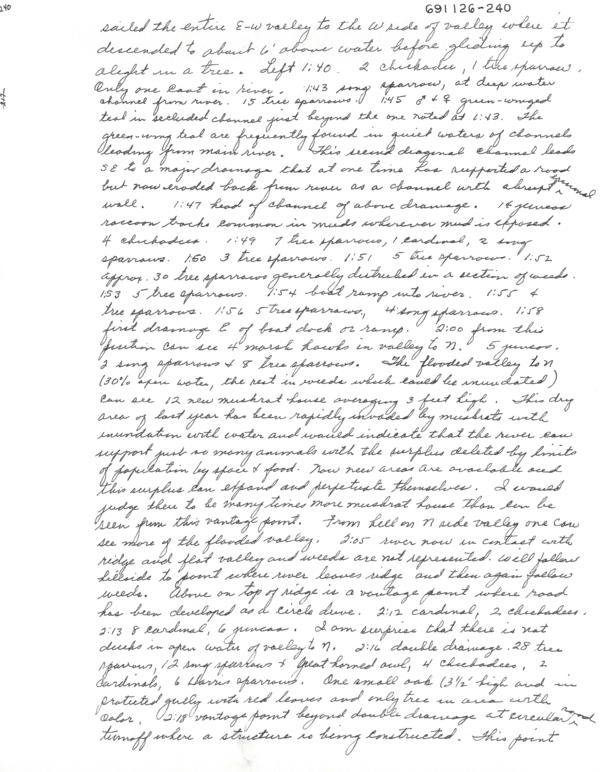 691126-240
sailed the entire E-W valley to the W side of valley where it
descended to about 6' above water before gliding up to
alight in a tree. Left 1:40. 2 chickadee, 1 tree sparrow.
Only one coot in river. 1:43 song sparrow, at deep water
channel from river. 15 tree sparrows. 1:45 ♂ + ♀ green-winged
teal in secluded channel just beyond the one noted at 1:43. The
green-wing teal are frequently found in quiet waters of channels
leading from main river. This second diagonal channel leads
SE to a major drainage that at one time has supported a road
but now eroded back from river as a channel with abrupt terminal
wall. 1:47 head of channel of above drainage. 14 juncos
raccoon tracks common in muds wherever mud is exposed.
4 chickadees. 1:49 7 tree sparrows, 1 cardinal, 2 song
sparrows. 1:50 3 tree sparrows. 1:51 5 tree sparrows. 1:52
approx. 30 tree sparrows generally distributed in a section of weeds.
1:53 5 tree sparrows. 1:54 boat ramp into river. 1:55 4
tree sparrows. 1:56 5 tree sparrows, 4 song sparrows. 1:58
first drainage E of boat dock or ramp. 2:00 from this
position can see 4 marsh hawks in valley to N. 5 juncos.
2 song sparrows + 8 tree sparrows. The flooded valley to N
(30% open water, the rest in weeds which could be inundated)
can see 12 new muskrat house averaging 3 feet high. This dry
area of last year has been rapidly invaded by muskrats with
inundation with water and would indicate that the river can
support just so many animals with the surplus deleted by limits
of population by space & food. Now new areas are available and
this surplus can expand and perpetuate themselves. I would
judge there to be many times more muskrat house than can be
seen from this vantage point. From hill on N side valley one can
see more of the flooded valley. 2:05 river now in contact with
ridge and flat valley and weeds are not represented. Will follow
hillside to point where river leaves ridge and then again follow
weeds. Above on top of ridge is a vantage point where road
has been developed as a circle drive. 2:12 cardinal, 2 chickadees.
2:13 8 cardinal, 6 juncos. I am surprise that there is not
ducks in open water of valley to N. 2:16 double drainage. 28 tree
sparrows, 12 song sparrows + great horned owl, 4 chickadees, 2
cardinals, 6 Harris sparrows. One small oak (3½' high and in
protected gully with red leaves and only tree in area with
color. 2:18 vantage point beyond double drainage at circular road
turnoff where a structure is being constructed. This point